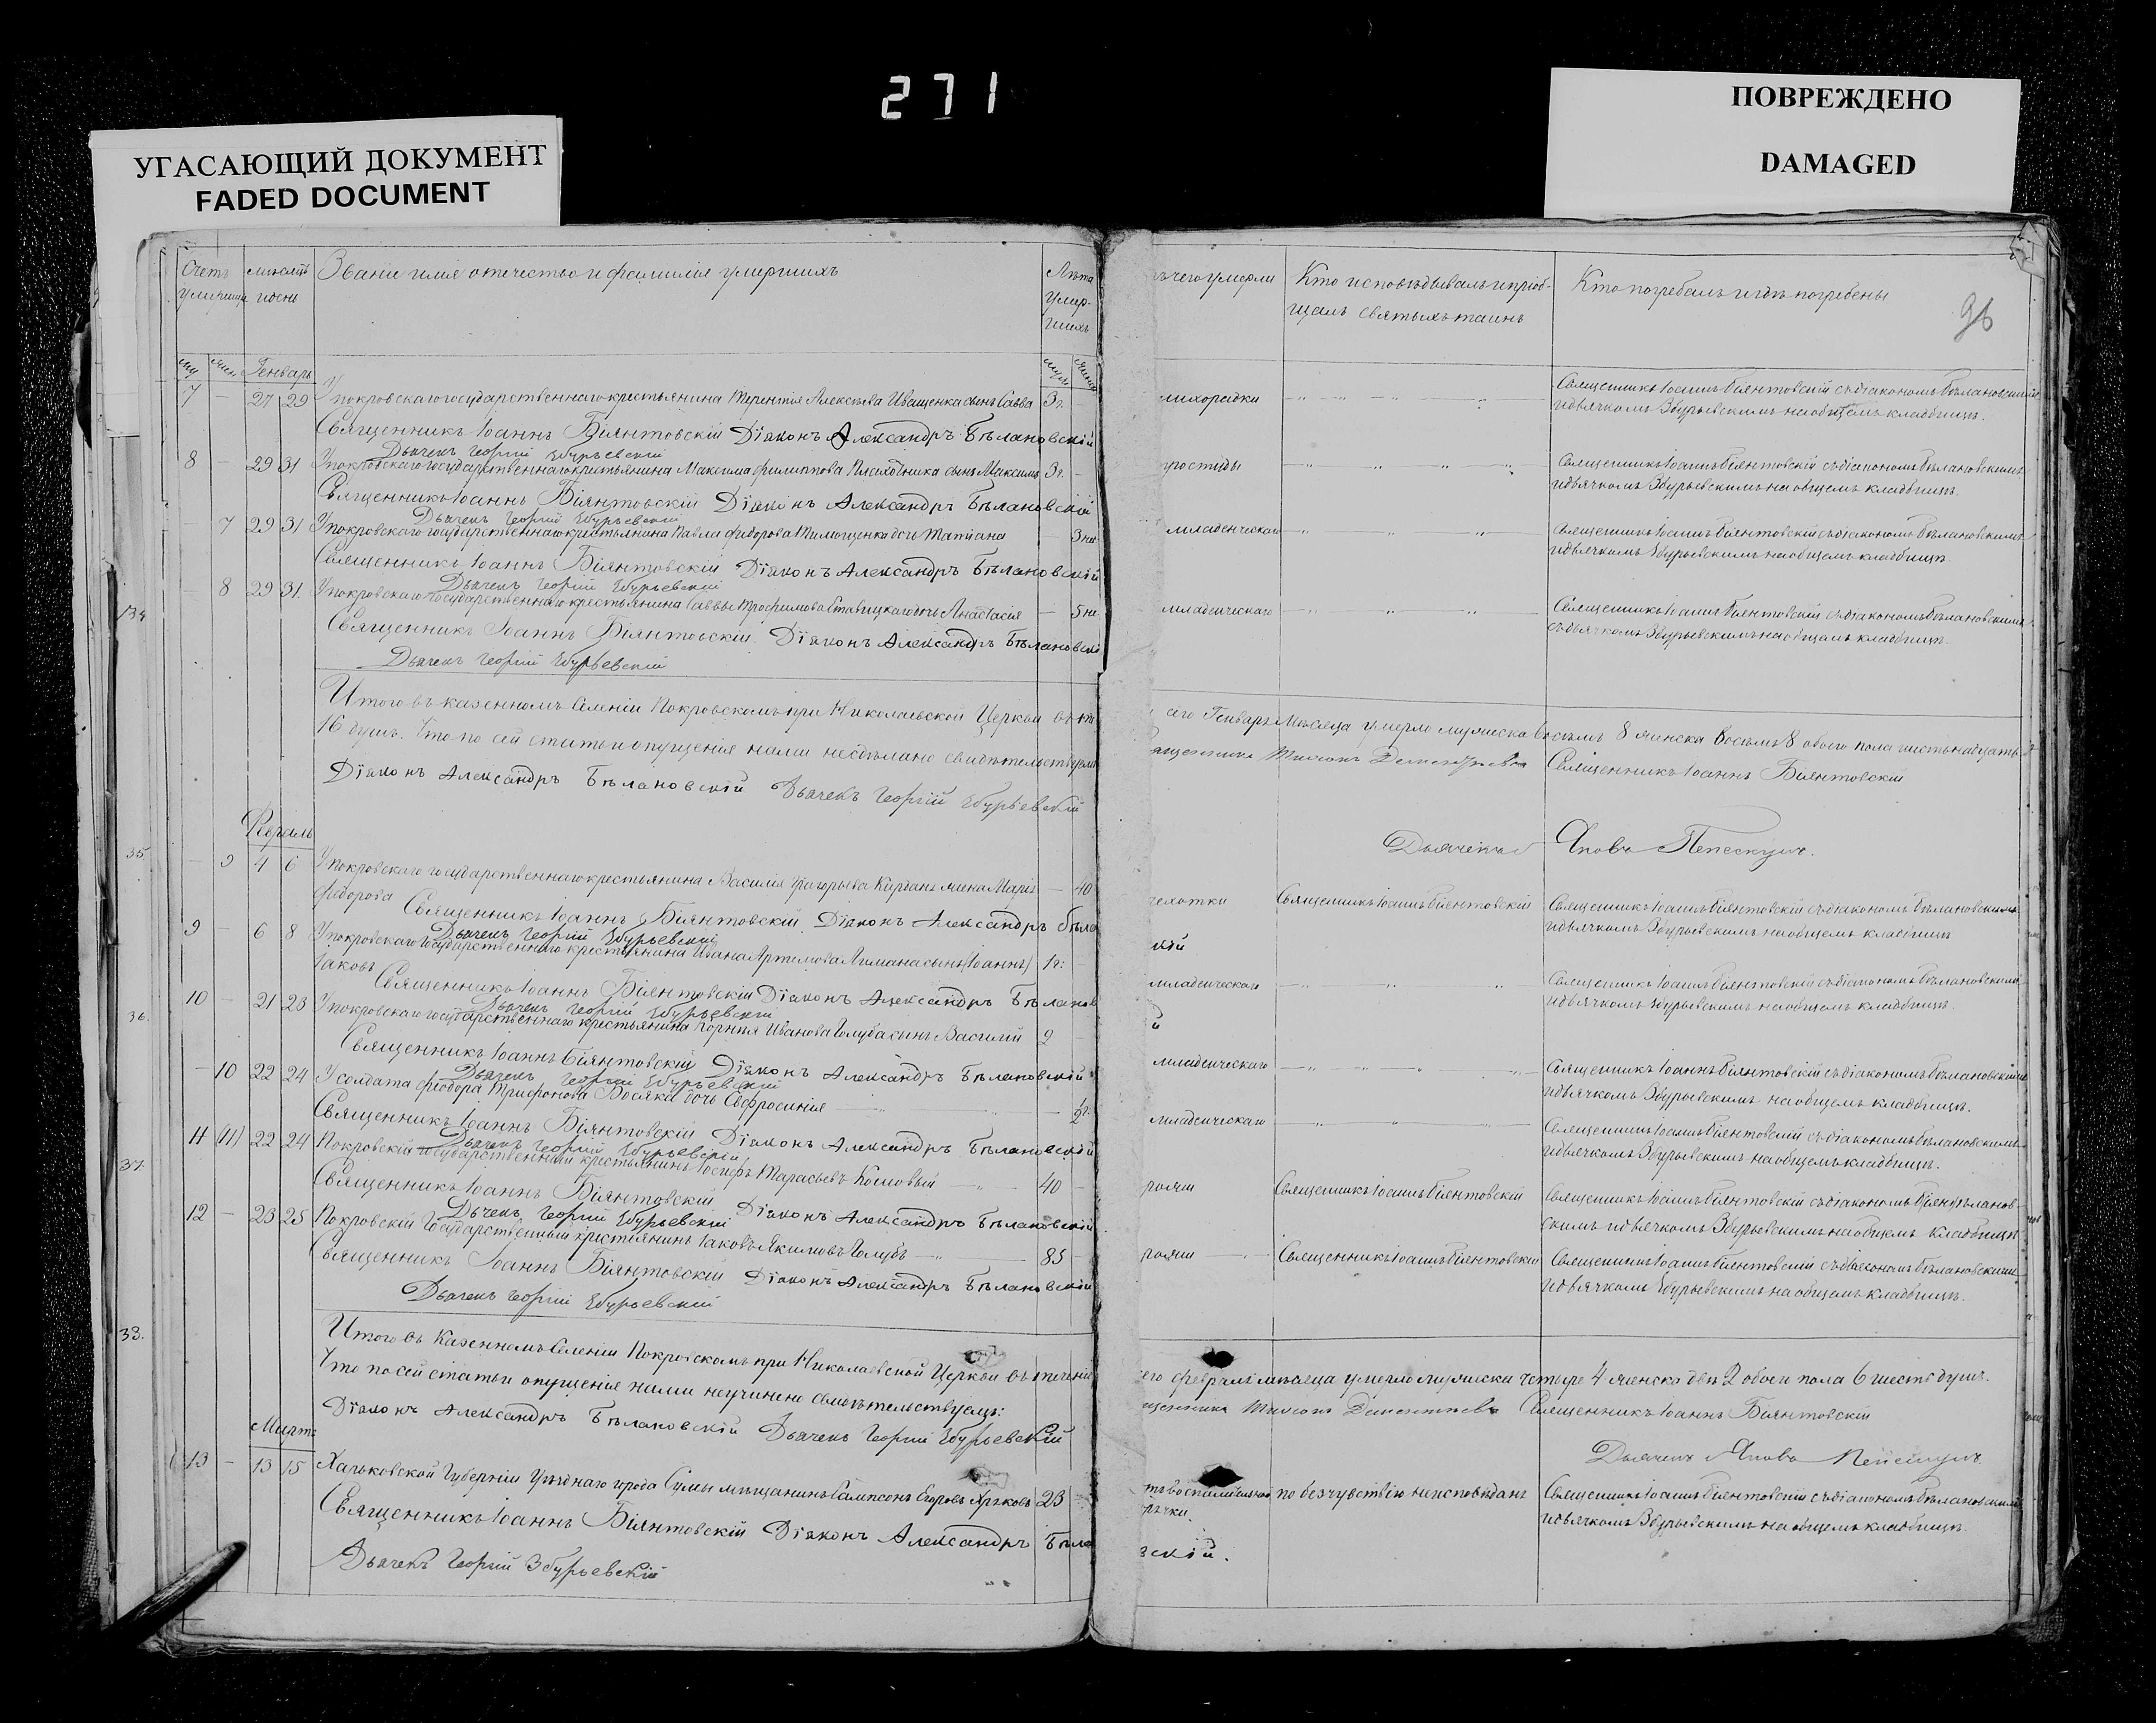 271
УГАСАЮЩИЙ ДОКУМЕНТ
FADED DOCUMENT
ПОВРЕЖДЕНО
DAMAGED
Счетъ умершихъ
мѣсяцъ и день
Званіе имя отечество и фамилія умершихъ
Лѣта умер-шихъ
чего умерли
Кто исповѣдывалъ и пріоб-
щалъ святыхъ таинъ
Кто погребалъ и гдѣ погребены
96
Генварь
7 - 27 29 У покровскаго государственнаго крестьянина Терентія Алексѣева Иващенка сынъ Савва 3 г. -
лихорадки
Священникъ Іоаннъ Біянтовскій съ діакономъ Бѣлановскимъ
и дьячкомъ Збурьевскимъ на общемъ кладбищѣ.
Священникъ Іоаннъ Біянтовскій Діяконъ Александръ Бѣлановскій
Дьячекъ Георгій Збурьевскій
8 - 29 31 У покровскаго государственнаго крестьянина Максима Филиппова сынъ Максимъ 3 г. -
простуды
Священникъ Іоаннъ Біянтовскій съ діакономъ Бѣлановскимъ
и дьячкомъ Збурьевскимъ на общемъ кладбищѣ.
Священникъ Іоаннъ Біянтовскій Діяконъ Александръ Бѣлановскій
Дьячекъ Георгій Збурьевскій
7 29 31 У покровскаго государственнаго крестьянина Павла Федорова Тимощенка дочь Татіана - 3 не.
младенческаго
Священникъ Іоаннъ Біянтовскій съ діакономъ Бѣлановскимъ
и дьячкомъ Збурьевскимъ на общемъ кладбищѣ.
Священникъ Іоаннъ Біянтовскій Діяконъ Александръ Бѣлановскій
Дьячекъ Георгій Збурьевскій
134
- 8 29 31. У покровскаго государственнаго крестьянина Саввы Трофимова Ставицкаго дочь Анастасія - 5 не.
младенческаго
Священникъ Іоаннъ Біянтовскій съ діакономъ Бѣлановскимъ
съ дьячкомъ Збурьевскимъ на общемъ кладбищѣ.
Священникъ Іоаннъ Біянтовскій. Діяконъ Александръ Бѣлановскі
Дьячекъ Георгій Збурьевскій
Итого въ казенномъ Селеніи Покровскомъ при Николаевской Церкви въ
сего Генваря мѣсяца умерло мужеска восемъ 8 женска восемъ 8 обоего пола шестьнадцать
16 душъ. Что по сей статьи опущенія нами несдѣлано свидѣтельствуемъ
Священникъ Іоаннъ Біянтовскій
Діяконъ Александръ Бѣлановскій Дьячекъ Георгій Збурьевскій
Дьячекъ Яковъ
Февраль
35.
- 9 4 6 У покровскаго государственнаго крестьянина Василія Григорьева жена Марія - 40
Федорова
чехотки
Священникъ Іоаннъ Біянтовскій
Священникъ Іоаннъ Біянтовскій съ діакономъ Бѣлановскимъ
и дьячкомъ Збурьевскимъ на общемъ кладбищѣ
Священникъ Іоаннъ Біянтовскій. Діяконъ Александръ Бѣла
кій
Дьячекъ Георгій Збурьевскій
9 - 6 8 У покровскаго государственнаго крестьянина Ивана Артемова Лимана сынъ (Іоаннъ) 1 г: -
Іаковъ
младенческаго
Священникъ Іоаннъ Біянтовскій съ діакономъ Бѣлановскимъ
и дьячкомъ Збурьевскимъ на общемъ кладбищѣ.
Священникъ Іоаннъ Біянтовскій Діяконъ Александръ Бѣланов
й
Дьячекъ Георгій Збурьевскій
36.
10 - 21 23 У покровскаго государственнаго крестьянина Корнія Иванова Голуба сынъ Василій 2 -
младенческаго
Священникъ Іоаннъ Біянтовскій съ діакономъ Бѣлановскимъ
и дьячкомъ Збурьевскимъ на общемъ кладбищѣ.
Священникъ Іоаннъ Біянтовскій Діяконъ Александръ Бѣлановскій
Дьячекъ Георгій Збурьевскій
- 10 22 24 У солдата Федора Трифонова Босяка дочь Евфросинія - ½ г:
младенческаго
Священникъ Іоаннъ Біянтовскій съ діакономъ Бѣлановскимъ
и дьячкомъ Збурьевскимъ на общемъ кладбищѣ.
Священникъ Іоаннъ Біянтовскій Діяконъ Александръ Бѣлановскій
Дьячекъ Георгій Збурьевскій
37.
11 (11) 22 24 Покровскій государственный крестьянинъ Іосифъ Тарасьевъ 40 -
Священникъ Іоаннъ Біянтовскій
Священникъ Іоаннъ Біянтовскій съ діакономъ Бѣланов-
скимъ и дьячкомъ Збурьевскимъ на общемъ кладбищѣ
Священникъ Іоаннъ Біянтовскій Діяконъ Александръ Бѣлановскій
Дьчекъ Георгій Збурьевскій
12 - 23 25 Покровскій Государственный крестьянинъ Іаковъ Якимовъ Голубъ 85 -
Священникъ Іоаннъ Біянтовскій
Священникъ Іоаннъ Біянтовскій съ діакономъ Бѣлановскимъ
и дьячкомъ Збурьевскимъ на общемъ кладбищѣ.
Священникъ Іоаннъ Біянтовскій Діяконъ Александръ Бѣлановскій
Дьячекъ Георгій Збурьевскій
38.
Итого въ Казенномъ Селеніи Покровскомъ при Николаевской Церкви въ теченіе
сего февраля мѣсяца умерло мужеска четыре 4 женска двѣ 2 обоего пола 6 шесть душъ.
Что по сей статьи опущенія нами неучинено свидѣтельствуемъ:
Священникъ Іоаннъ Біянтовскій
Діяконъ Александръ Бѣлановскій Дьячекъ Георгій Збурьевскій
Дьячекъ Яковъ
Мартъ
13 - 13 15 Харьковской Губерніи уѣзднаго города Сумы мѣщанинъ Сампсонъ Егоровъ 23 -
по безчувствію неисповѣданъ
Священникъ Іоаннъ Біянтовскій съ діакономъ Бѣлановскимъ
и дьячкомъ Збурьевскимъ на общемъ кладбищѣ.
Священникъ Іоаннъ Біянтовскій Діяконъ Александръ Бѣла
вскій.
Дьячекъ Георгій Збурьевскій